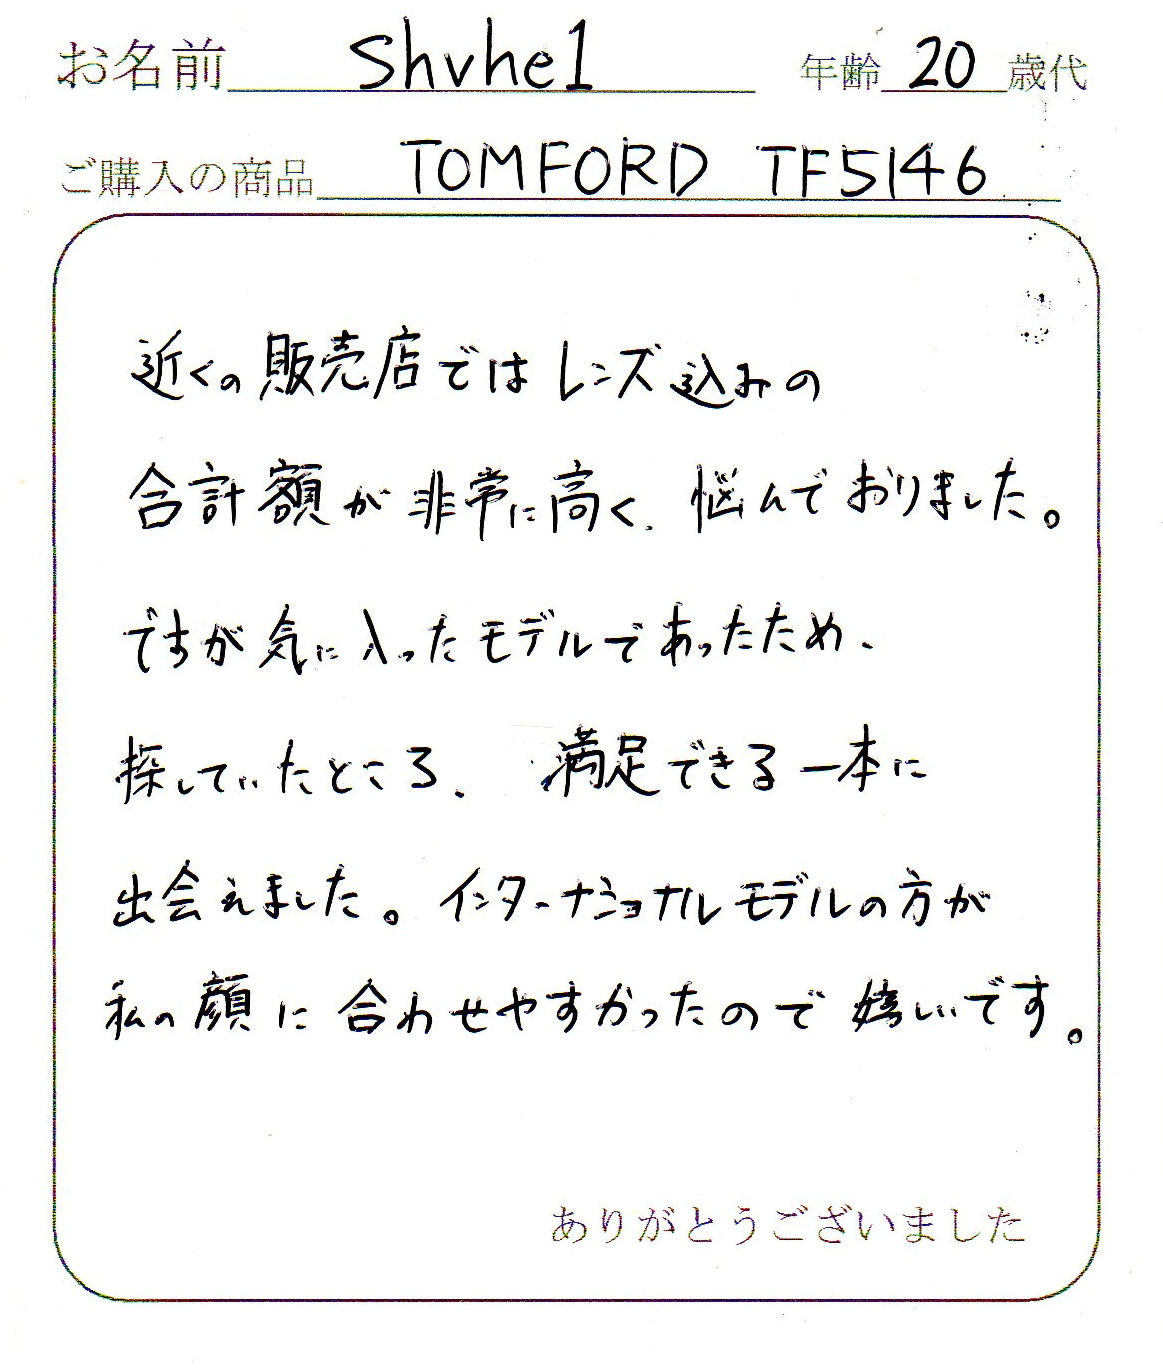 お名前 Shvhe1 年齢 20 歳代
ご購入の商品 TOMFORD TF5146
近くの販売店ではレンズ込みの
合計額が非常に高く、悩んでおりました。
ですが気に入ったモデルであったため、
探していたところ、満足できる一本に
出会えました。インターナショナルモデルの方が
私の顔に合わせやすかったので嬉しいです。
ありがとうございました